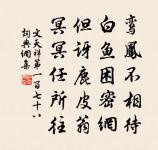 鸾鳳不相待
白魚困密網
但讶鹿皮翁
冥冥任所往
文天祥第一百七十八
詞典網集